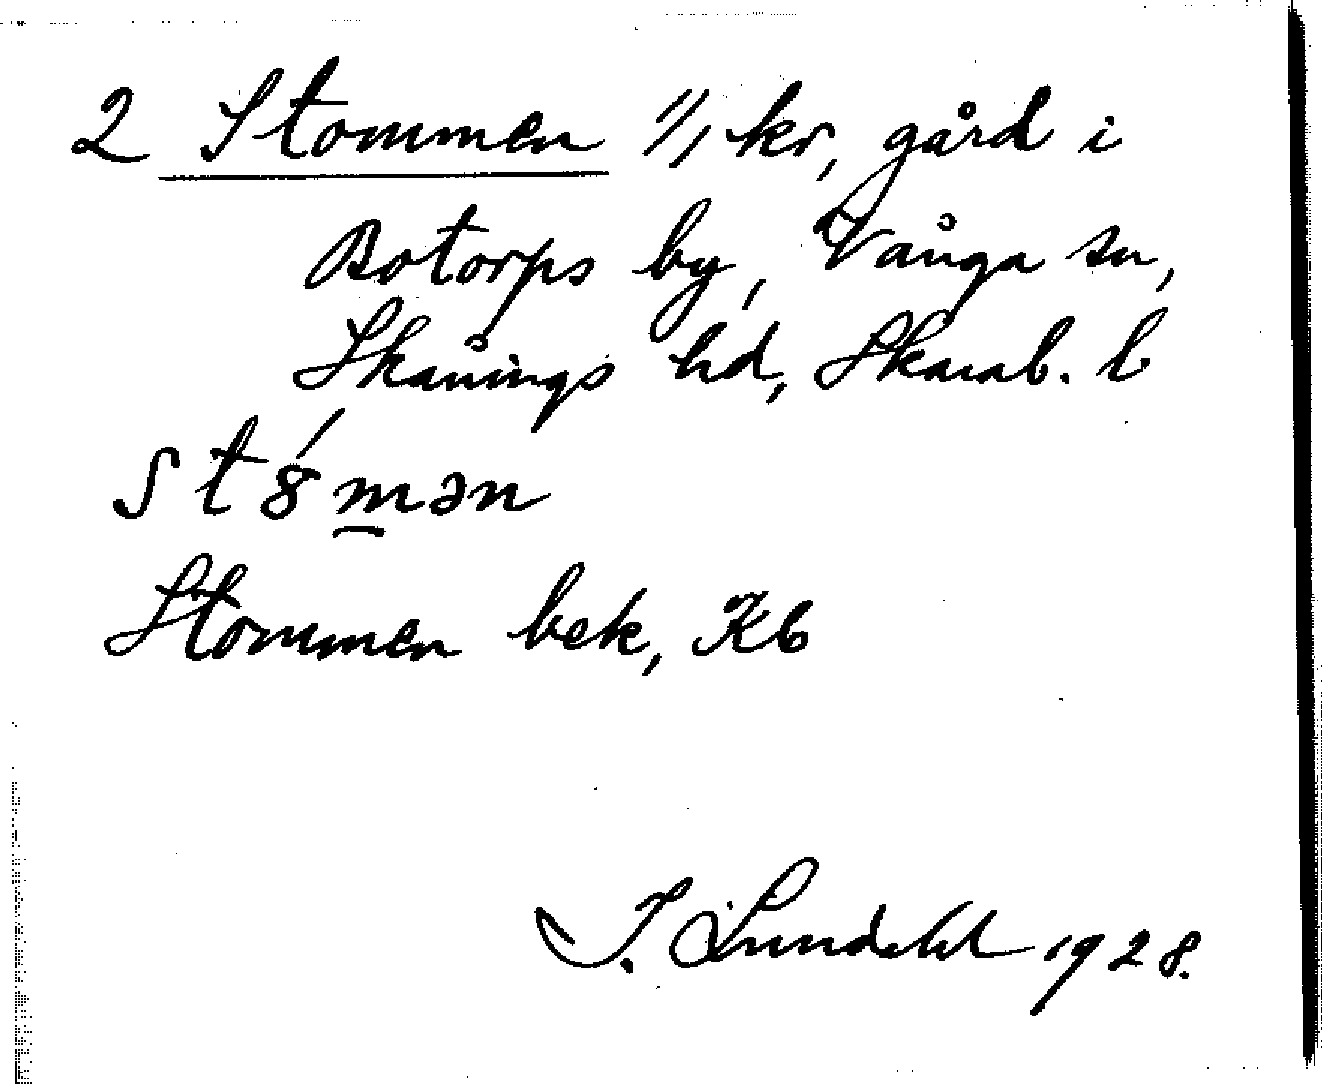 2 Stommen 1/1 kr, gård i
Botorps by, Vånga sn,
Skånings hd, Skarab. l
st8́mən
Stommen bek, Kb
I. Lundahl 1928.